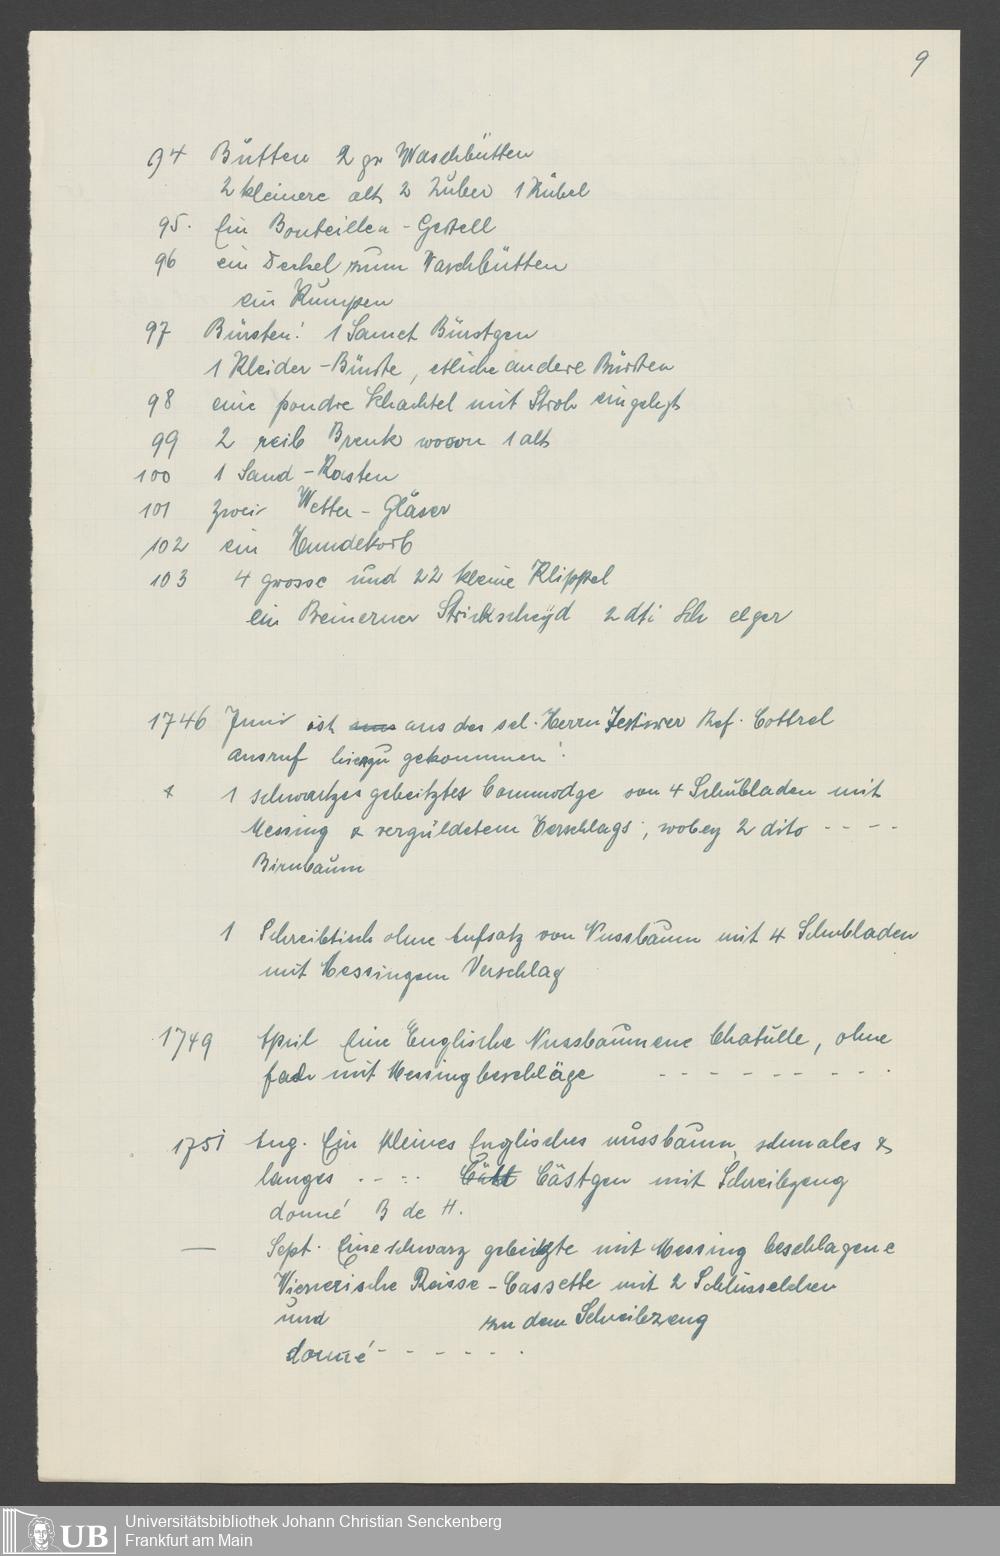 9
94 Bütten 2 gr Waschbütten
2 kleinere alt 2 Zuber 1 Kübel
95. Ein Bouteillen - Gestell
96 ein Deckel zum Waschbütten
ein Kumpen
97 Bürsten: 1 Samet Bürstgen
1 Kleider - Bürste, etliche andere Bürsten
98 eine poudre Schachtel mit Stroh eingelegt
99 2 reib Brenk wovon 1 alt
100 1 Sand - Kasten
101 zwei Wetter - Gläser
102 ein Hundekorb
103 4 grosse und 22 kleine Klippel
ein Beinerner Strickscheyd 2 dti
1746 Juni ist aus des sel. Herrn Ref. Cottrel
ausruf hierzu gekommen:
1 schwartzes gebeitztes Commodge von 4 Schubladen mit
Messing & vergüldetem Verschlags, wobey 2 dito - - - -
Birnbaum
1 Schreibtisch ohne Aufsatz von Nussbaum mit 4 Schubladen
mit Messingem Verschlag
1749 April Eine Englische Nussbaumene Chatulle, ohne
fach mit Messing beschläge - - - - - - - - -
1751 Aug. Ein kleines Englisches nussbaum schmales &
langes - - - - Cästgen mit Schreibzeug
donné B de H.
— Sept. Eine schwarz gebeitzte mit Messing beschlagene
Wienerische Reisse - Cassette mit 2 Schlüsselchen
und zu dem Schreibzeug
donné - - - - - -
Universitätsbibliothek Johann Christian Senckenberg
Frankfurt am Main
UB